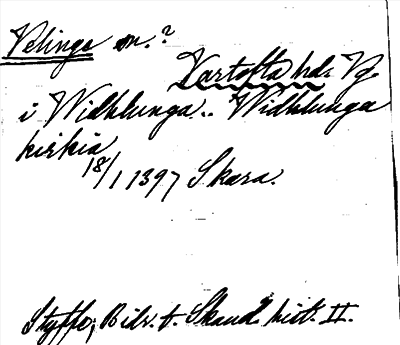 Velinge sn.?
Vartofta hd: Vg.
i Widhlunga.. Widhlunga
kirkia
18/1 1397 Skara.
Styffe, Bidr. t. Skand. hist. II.